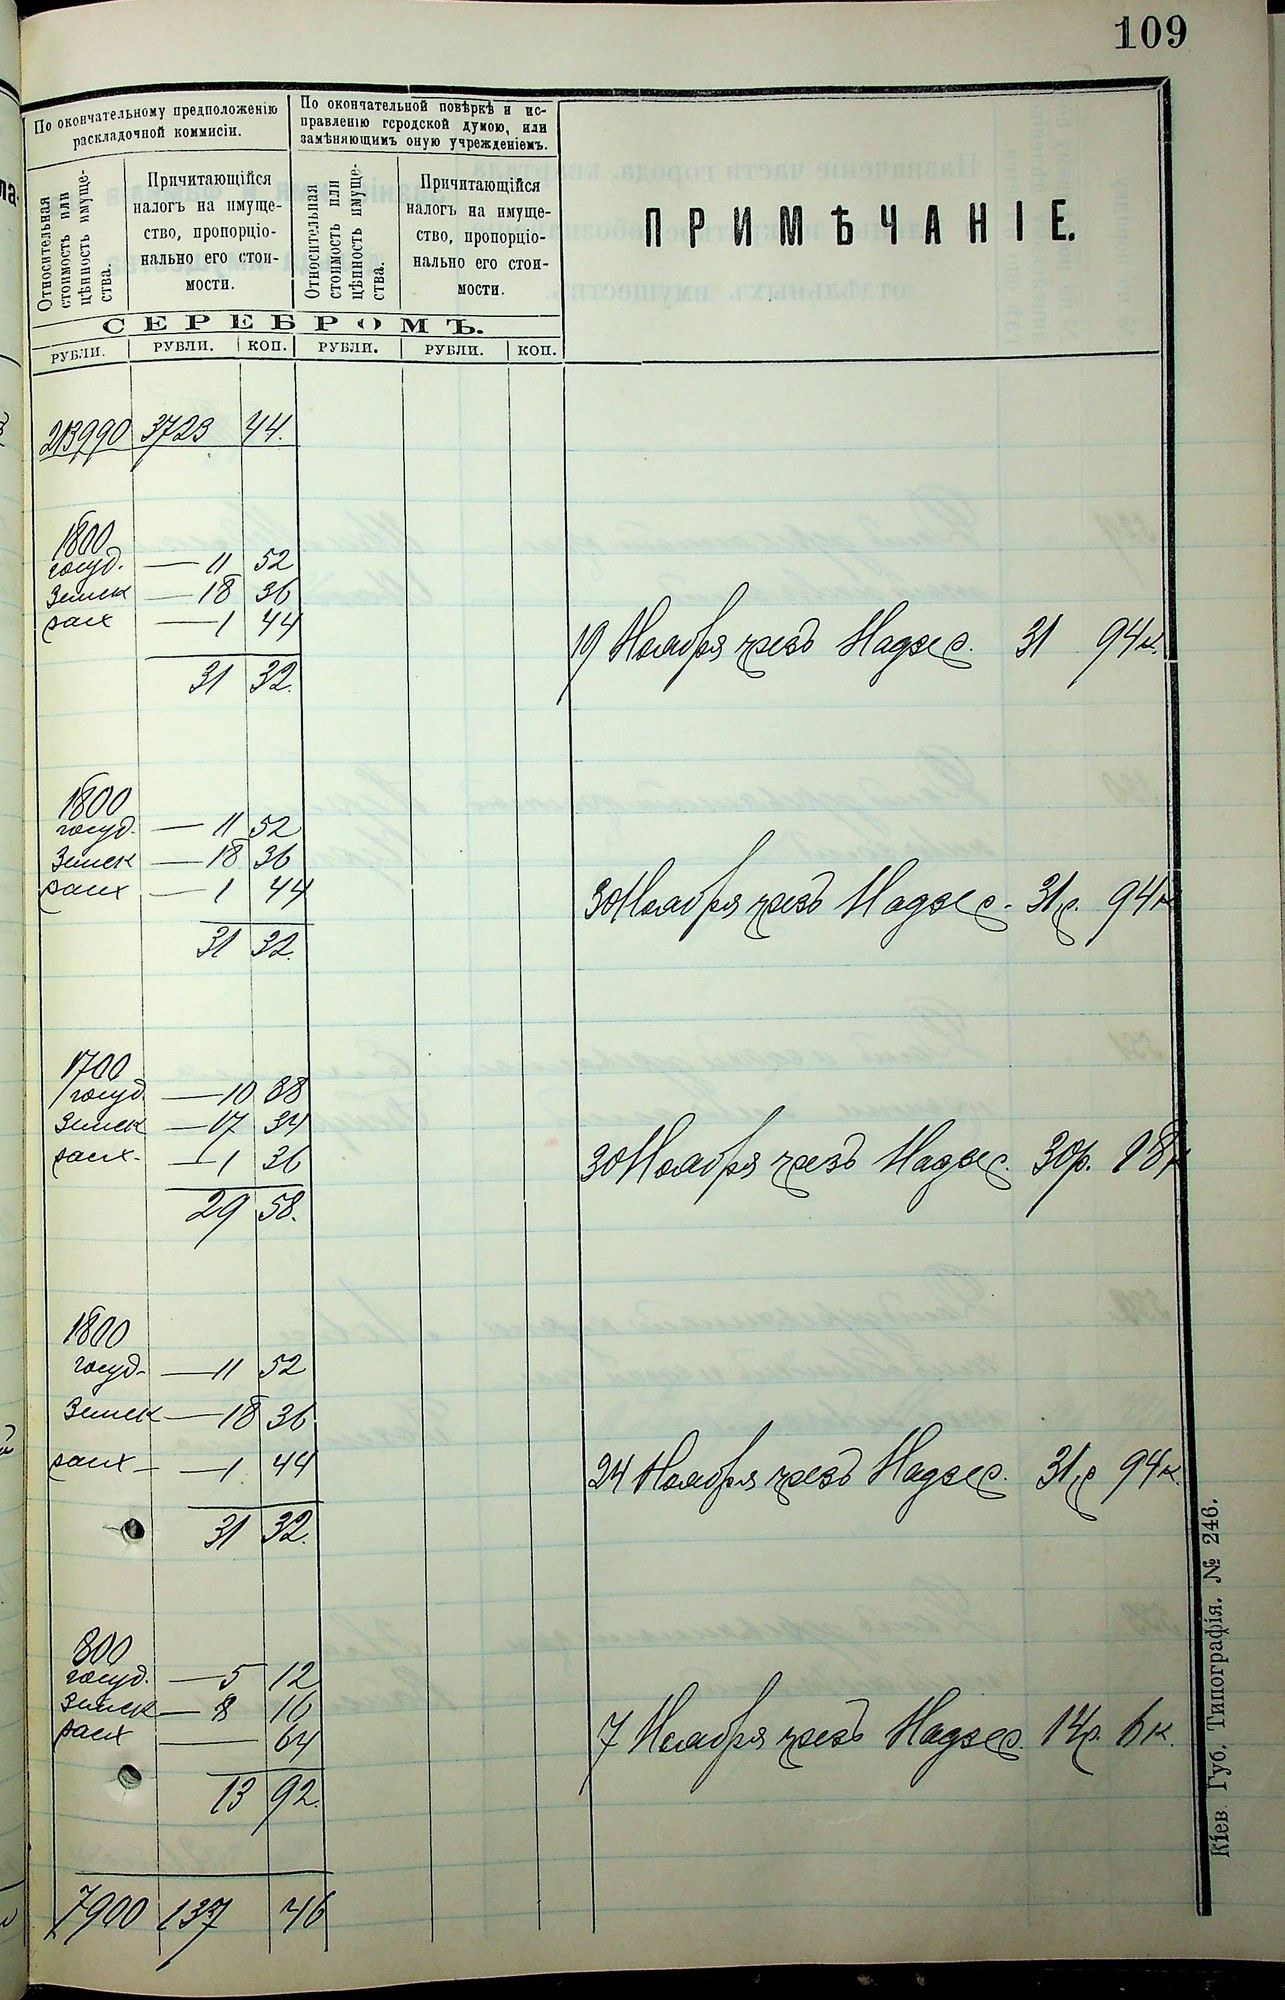 109
По окончательному предположенію
раскладочной коммисіи.
По окончательной повѣркѣ и ис-
правленію городской думою, или
замѣняющимъ оную учрежденіемъ.
Относительная
стоимость или
цѣнность имуще-
ства.
Причитающійся
налогъ на имуще-
ство, пропорціо-
нально его стои-
мости.
Относительная
стоимость или
цѣнность имуще-
ства.
Причитающійся
налогъ на имуще-
ство, пропорціо-
нально его стои-
мости.
ПРИМѢЧАНІЕ.
СЕРЕБРОМЪ.
РУБЛИ. РУБЛИ. КОП. РУБЛИ. РУБЛИ. КОП.
213990 3723 44.
1800
госуд. — 11 52
Земск — 18 36
расх — 1 44
19 Ноября чрезъ Надзер. 31 94к.
31 32.
1800
госуд. — 11 52
Земск — 18 36
расх — 1 44
30 Ноября чрезъ Надзер. 31р. 94к
31 32.
1700
госуд — 10 88
Земск — 17 34
расх. — 1 36
30 Ноября чрезъ Надзер. 30р. 18к
29 58.
1800
госуд. — 11 52
Земск — 18 36
расх — 1 44
24 Ноября чрезъ Надзер. 31р 94к
31 32.
800
госуд. — 5 12
Земск — 8 16
расх — 64
7 Ноября чрезъ Надзер. 14р. 6к.
13 92.
7900 137 46
Кіев. Губ. Типографія. № 246.